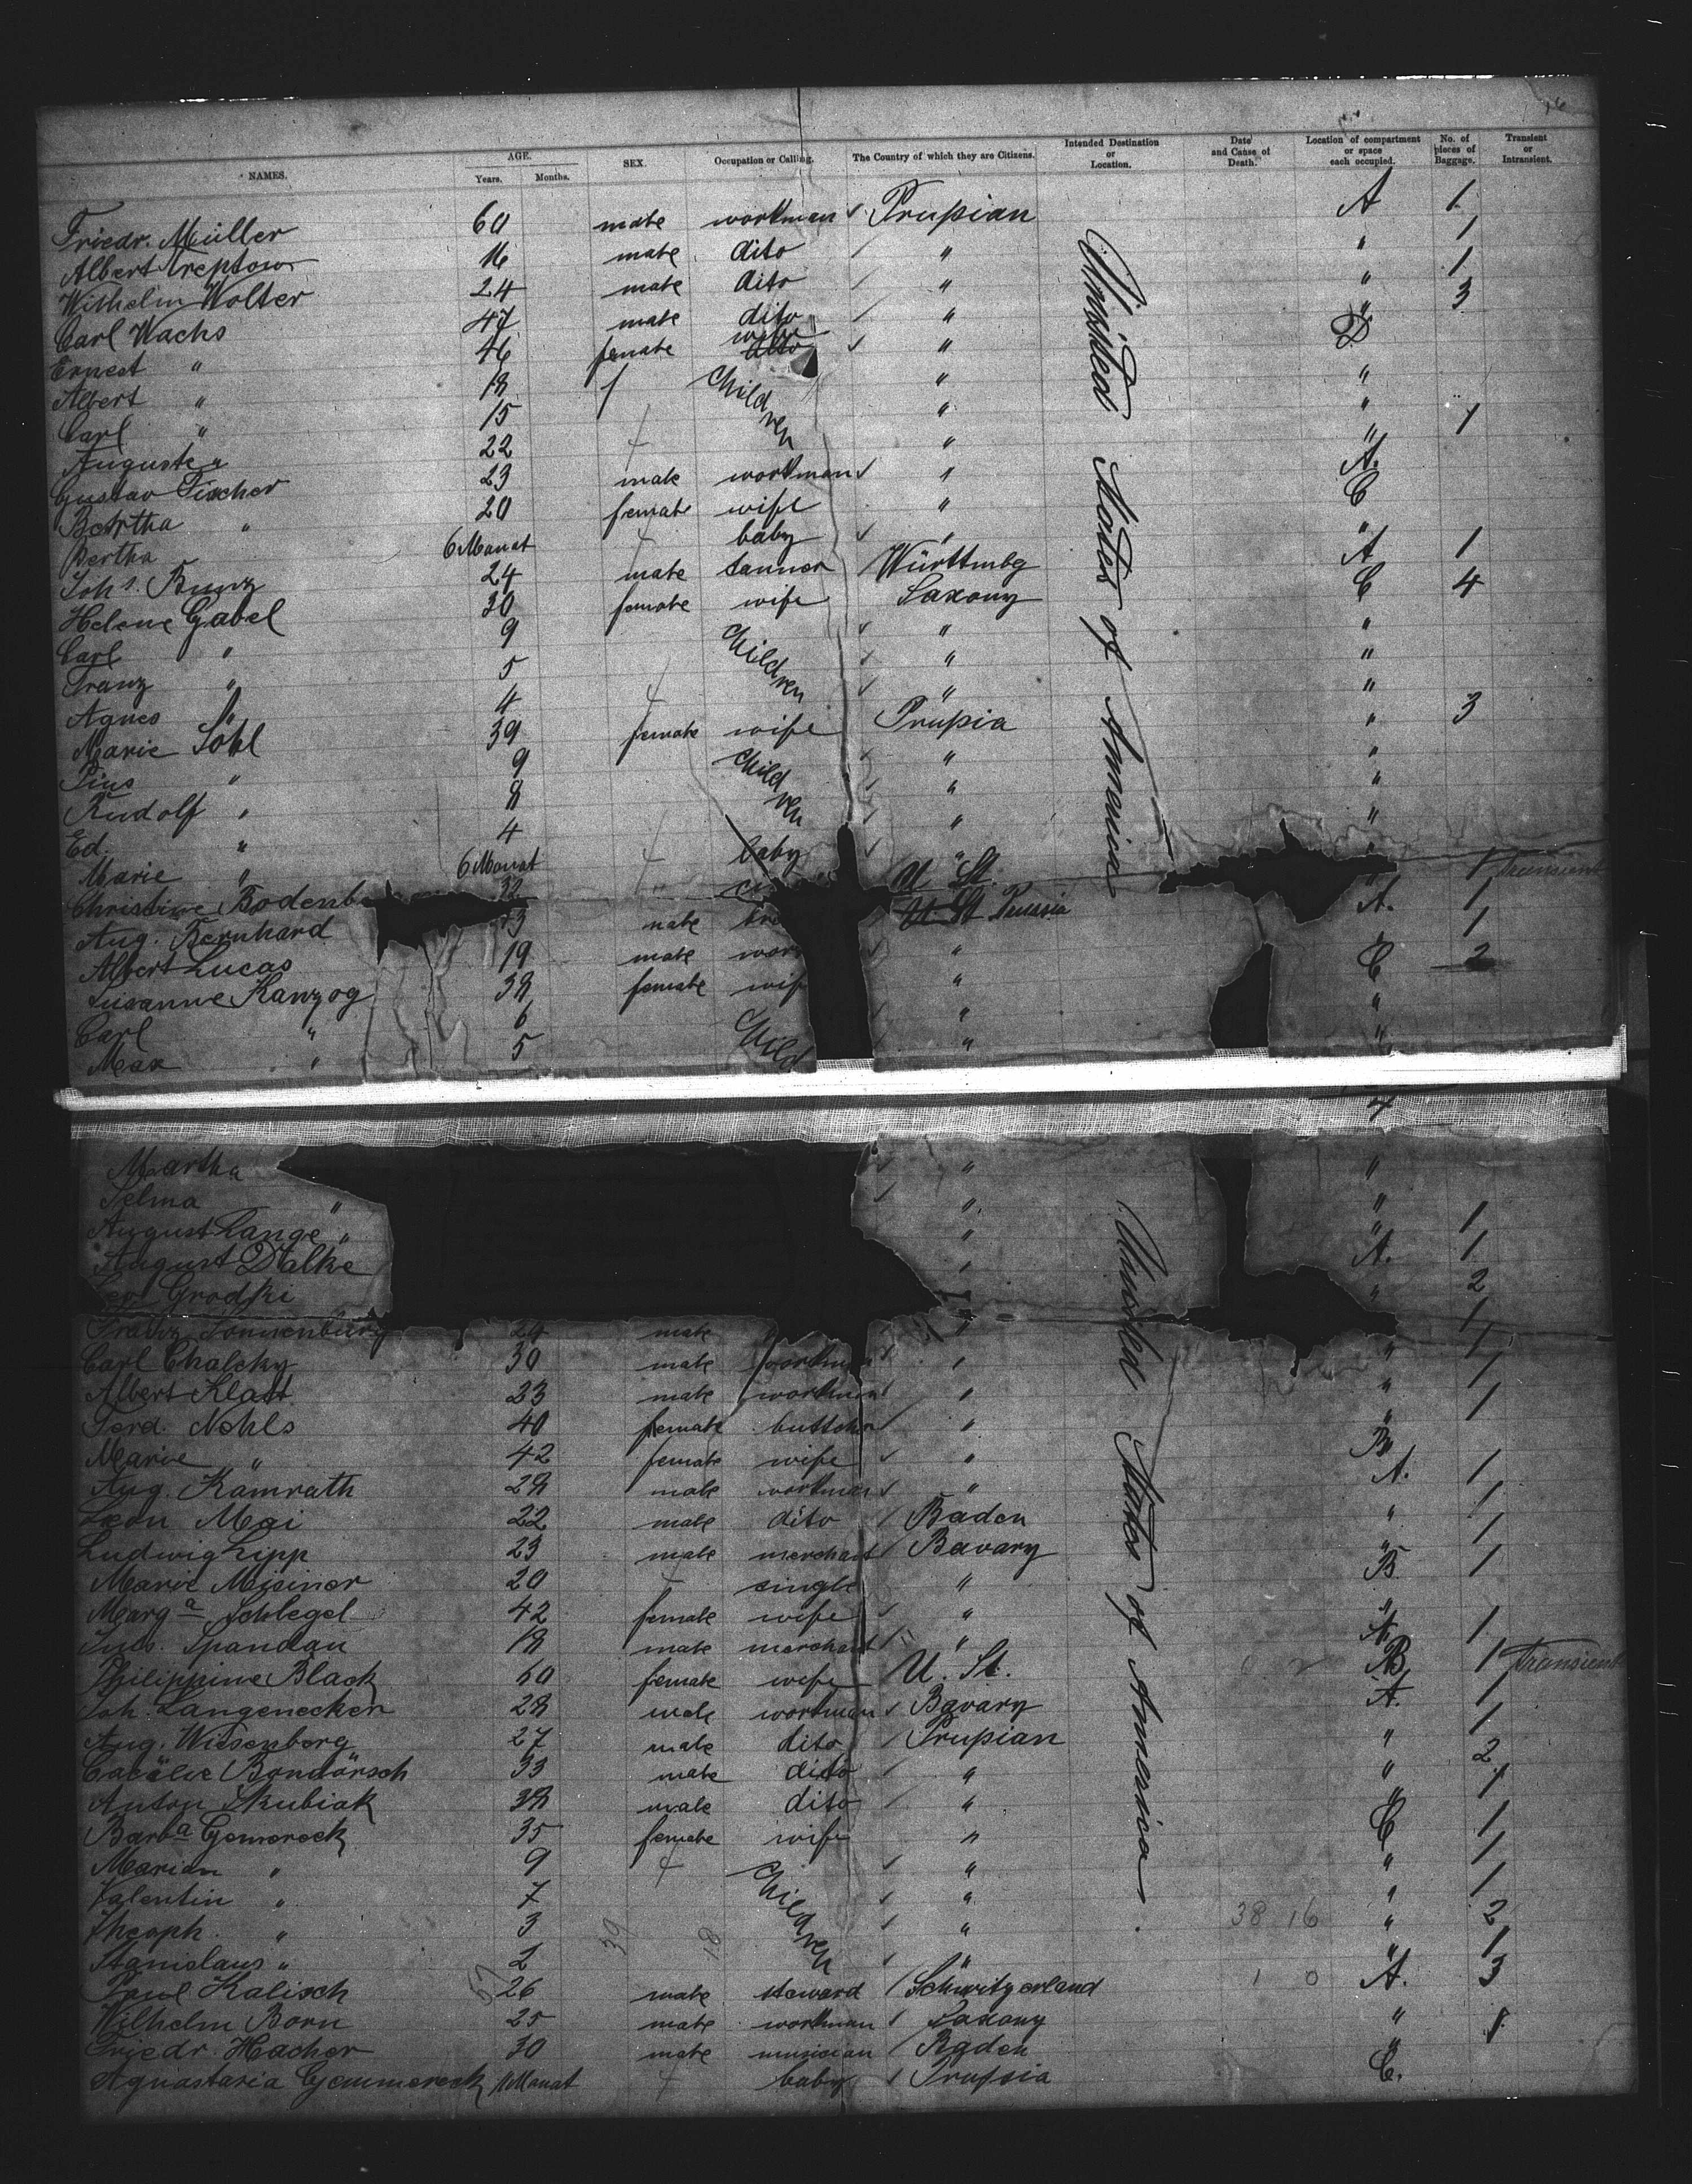 NAMES. AGE. Years. Months. SEX. Occupation or Calling. The Country of which they are Citizens. Intended Destination or Location. Date and Cause of Death. Location of compartment or space each occupied. No. of pieces of Baggage. Transient or Intransient.
Friedr. Müller 60 male workman Prußian A 1
Albert Treptow 16 male dito " " 1
Wilhelm Wolter 24 male dito " " 1
Carl Wachs 47 male dito " " 3
Ernest " 46 female wife dito " D
Albert " 18 Children " "
Carl " 15 " "
Auguste " 22 " " 1
Gustav Fischer 23 male workman " A.
Bertha " 20 female wife " C
Bertha 6 Monat baby " "
Joh. Bunz 24 male tanner Württmbg A 1
Helene Gabel 30 female wife Saxony C 4
Carl " 9 Children " "
Franz " 5 " "
Agnes " 4 " "
Marie Sohl 39 female wife Prußia " 3
Pius " 9 Children " "
Rudolf " 8 " "
Ed. " 4 " "
Marie " 6 Monat baby " "
Christine Bodenb 32 " U. St. " 1 Transient
Aug. Bernhard male U. St. Prussia A. 1
Albert Lucas 19 male wor " " 1
Susanne Kanzog 38 female wif " C 2
Carl " 6 Child " "
Max " 5 " "
United States of America
Martha " "
Selma " " "
August Lange " " " 1
August Dalke " A. 1
Grodßki " 2
Franz Sonnenburg 24 male " 1
Carl Chalcky 30 male workman " " 1
Albert Klatt 23 male workman " " 1
Ferd. Nehls 40 female buttcher " " 1
Marie " 42 female wife " B
Aug. Kamrath 28 male workman " A. 1
Leon Mai 22 male dito Baden " 1
Ludwig Lipp 23 male merchant Bavary " 1
Marie Misiner 20 single " B 1
Marg<sup>a</sup> Schlegel 42 female wife " "
Jul. Spandau 18 male merchant " A. 1
Philippine Black 60 female wife U. St. B 1 Transient
Joh. Langenecker 28 male workman Bavary A. 1
Aug. Wiesenberg 27 male dito Prußian " 1
Bondörsch 33 male dito " " 2
Anton Skubiak 38 male dito " " 1
Barb<sup>a</sup> Gemereck 35 female wife " C 1
Marian " 9 Children " " 1
Valentin " 7 " " 1
Theoph. " 3 " 38 16 " 2
Stanislaus " 2 " " 1
Paul Kalisch 26 male steward Schwitzerland 1 0 A. 3
Wilhelm Born 25 male workman Saxony " 1
Friedr. Hacher 30 male musician Baden "
Agnastasia Gemmereck 11 Monat baby Prußia C.
United States of America.